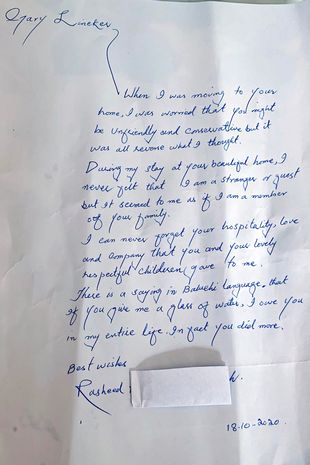 Gary Lineker
When I was moving to your
home, I was worried that you might
be unfriendly and conservative but it
was all reverse what I thought.
During my stay at your beautiful home, I
never felt that I am a stranger or guest
but it seemed to me as if I am a member
of your family.
I can never forget your hospitality, love
and company that you and your lovely
respectful children, gave to me.
There is a saying in Balochi language, that
if you give me a glass of water, I owe you
in my entire life. In fact you did more.
Best wishes
Rasheed
18-10-2020.